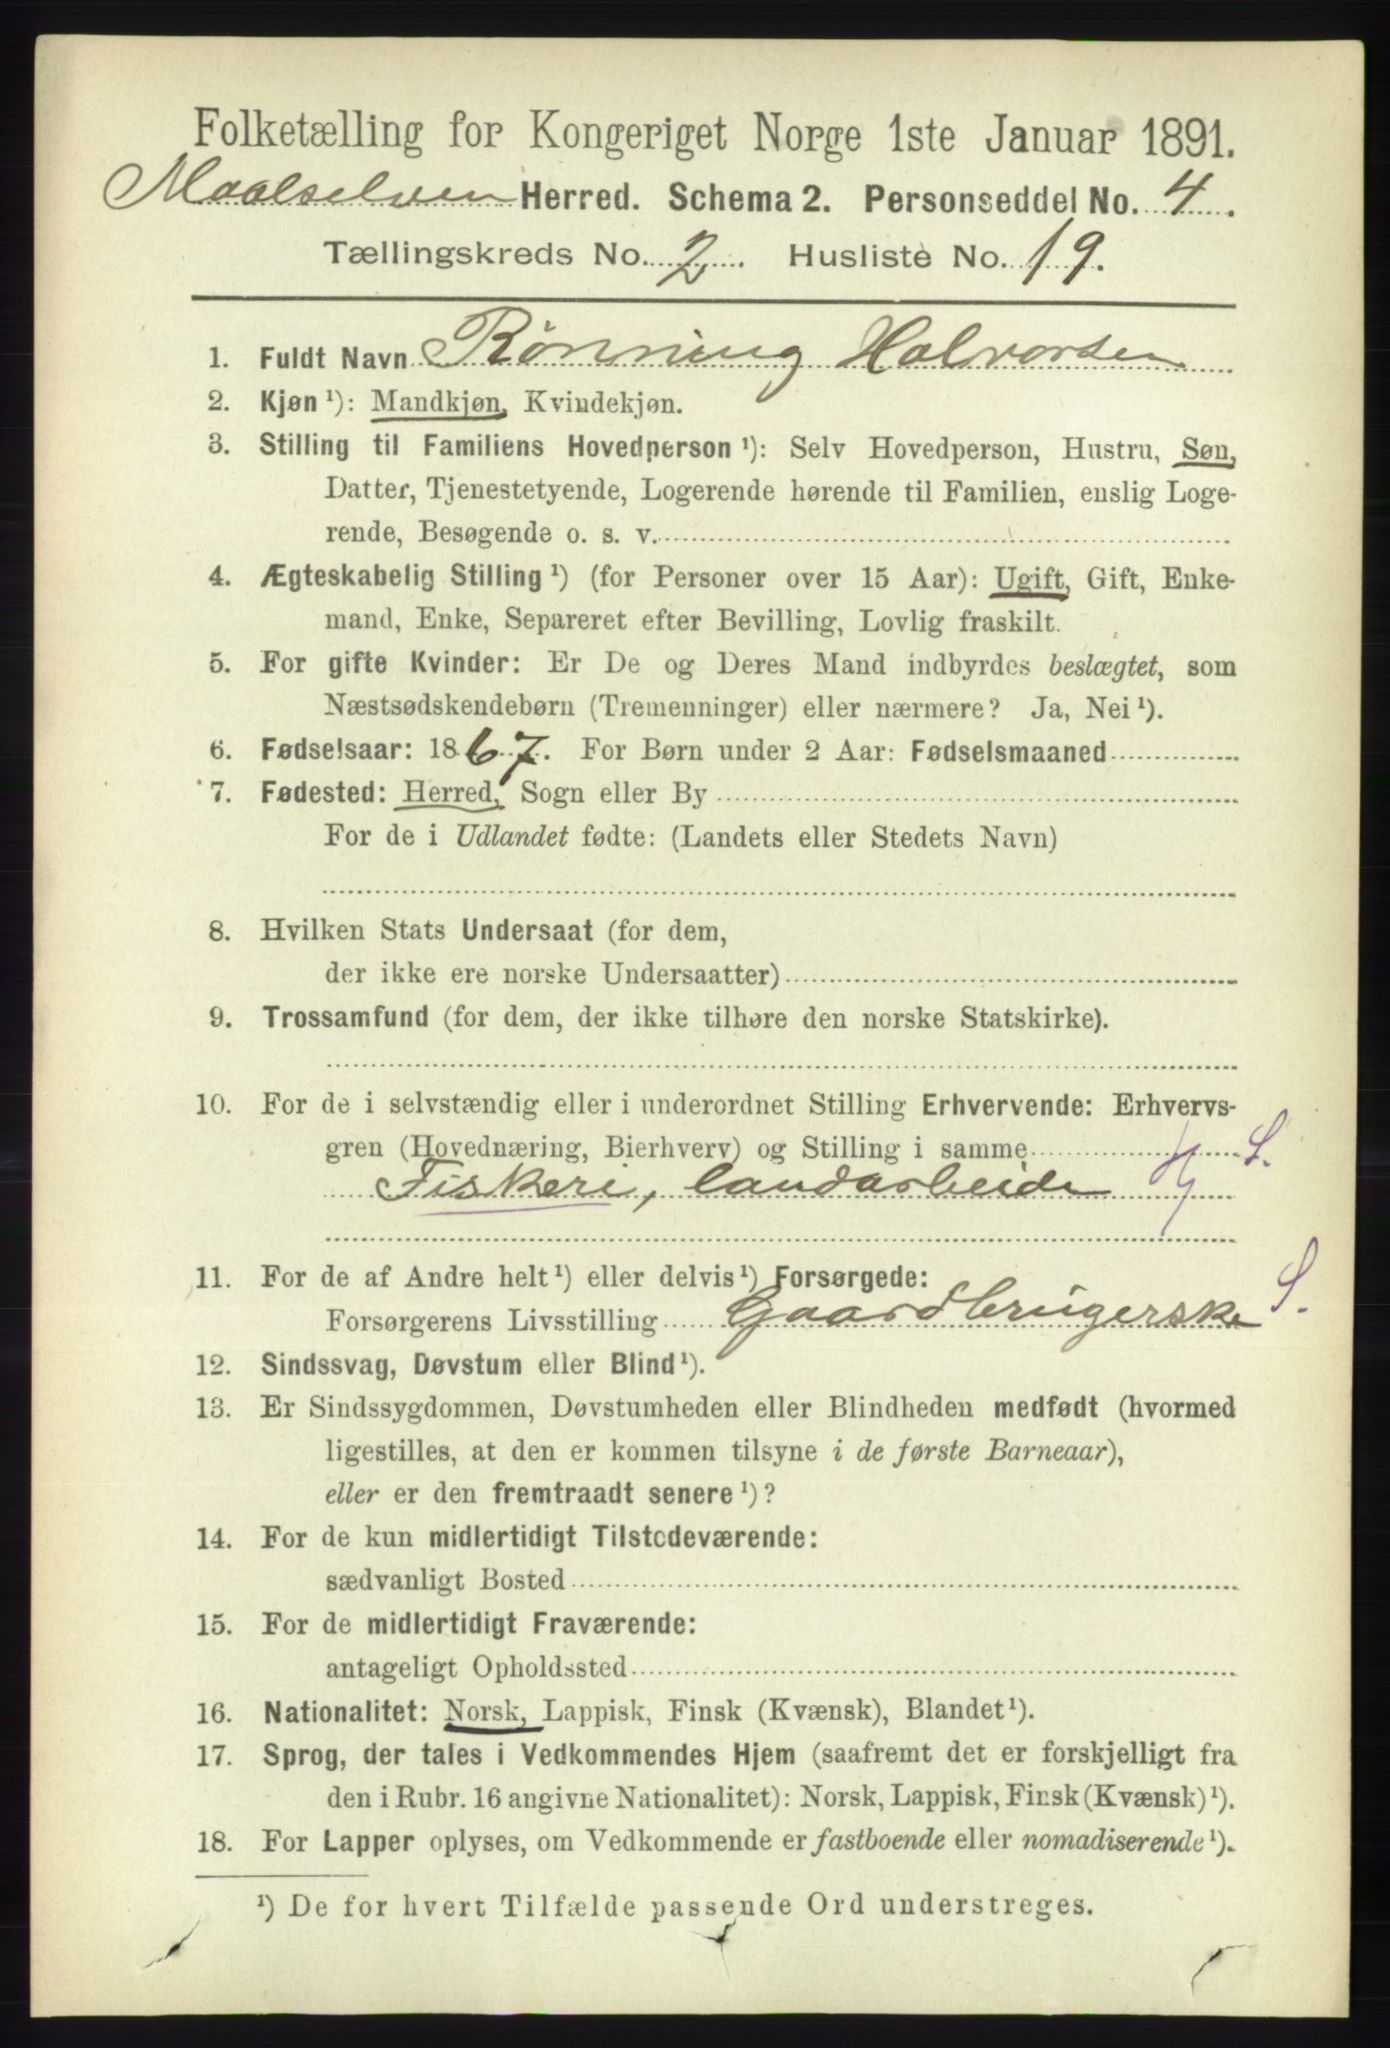 Folketælling for Kongeriget Norge 1ste Januar 1891.
Maalselven Herred. Schema 2. Personseddel No. 4.
Tællingskreds No. 2. Husliste No. 19.
1. Fuldt Navn Rönning Halvorsen
2. Kjøn ¹): Mandkjøn, Kvindekjøn.
3. Stilling til Familiens Hovedperson ¹): Selv Hovedperson, Hustru, Søn,
Datter, Tjenestetyende, Logerende hørende til Familien, enslig Loge-
rende, Besøgende o. s. v.
4. Ægteskabelig Stilling ¹) (for Personer over 15 Aar): Ugift, Gift, Enke-
mand, Enke, Separeret efter Bevilling, Lovlig fraskilt.
5. For gifte Kvinder: Er De og Deres Mand indbyrdes beslægtet, som
Næstsødskendebørn (Tremenninger) eller nærmere? Ja, Nei ¹).
6. Fødselsaar: 1867. For Børn under 2 Aar: Fødselsmaaned
7. Fødested: Herred, Sogn eller By
For de i Udlandet fødte: (Landets eller Stedets Navn)
8. Hvilken Stats Undersaat (for dem,
der ikke ere norske Undersaatter)
9. Trossamfund (for dem, der ikke tilhøre den norske Statskirke).
10. For de i selvstændig eller i underordnet Stilling Erhvervende: Erhvervs-
gren (Hovednæring, Bierhverv) og Stilling i samme S.
Fiskeri, landarbeide
11. For de af Andre helt ¹) eller delvis ¹) Forsørgede:
Forsørgerens Livsstilling Gaardbrugerske S.
12. Sindssvag, Døvstum eller Blind ¹).
13. Er Sindssygdommen, Døvstumheden eller Blindheden medfødt (hvormed
ligestilles, at den er kommen tilsyne i de første Barneaar),
eller er den fremtraadt senere ¹)?
14. For de kun midlertidigt Tilstedeværende:
sædvanligt Bosted
15. For de midlertidigt Fraværende:
antageligt Opholdssted
16. Nationalitet: Norsk, Lappisk, Finsk (Kvænsk), Blandet ¹).
17. Sprog, der tales i Vedkommendes Hjem (saafremt det er forskjelligt fra
den i Rubr. 16 angivne Nationalitet): Norsk, Lappisk, Finsk (Kvænsk) ¹).
18. For Lapper oplyses, om Vedkommende er fastboende eller nomadiserende ¹).
¹) De for hvert Tilfælde passende Ord understreges.